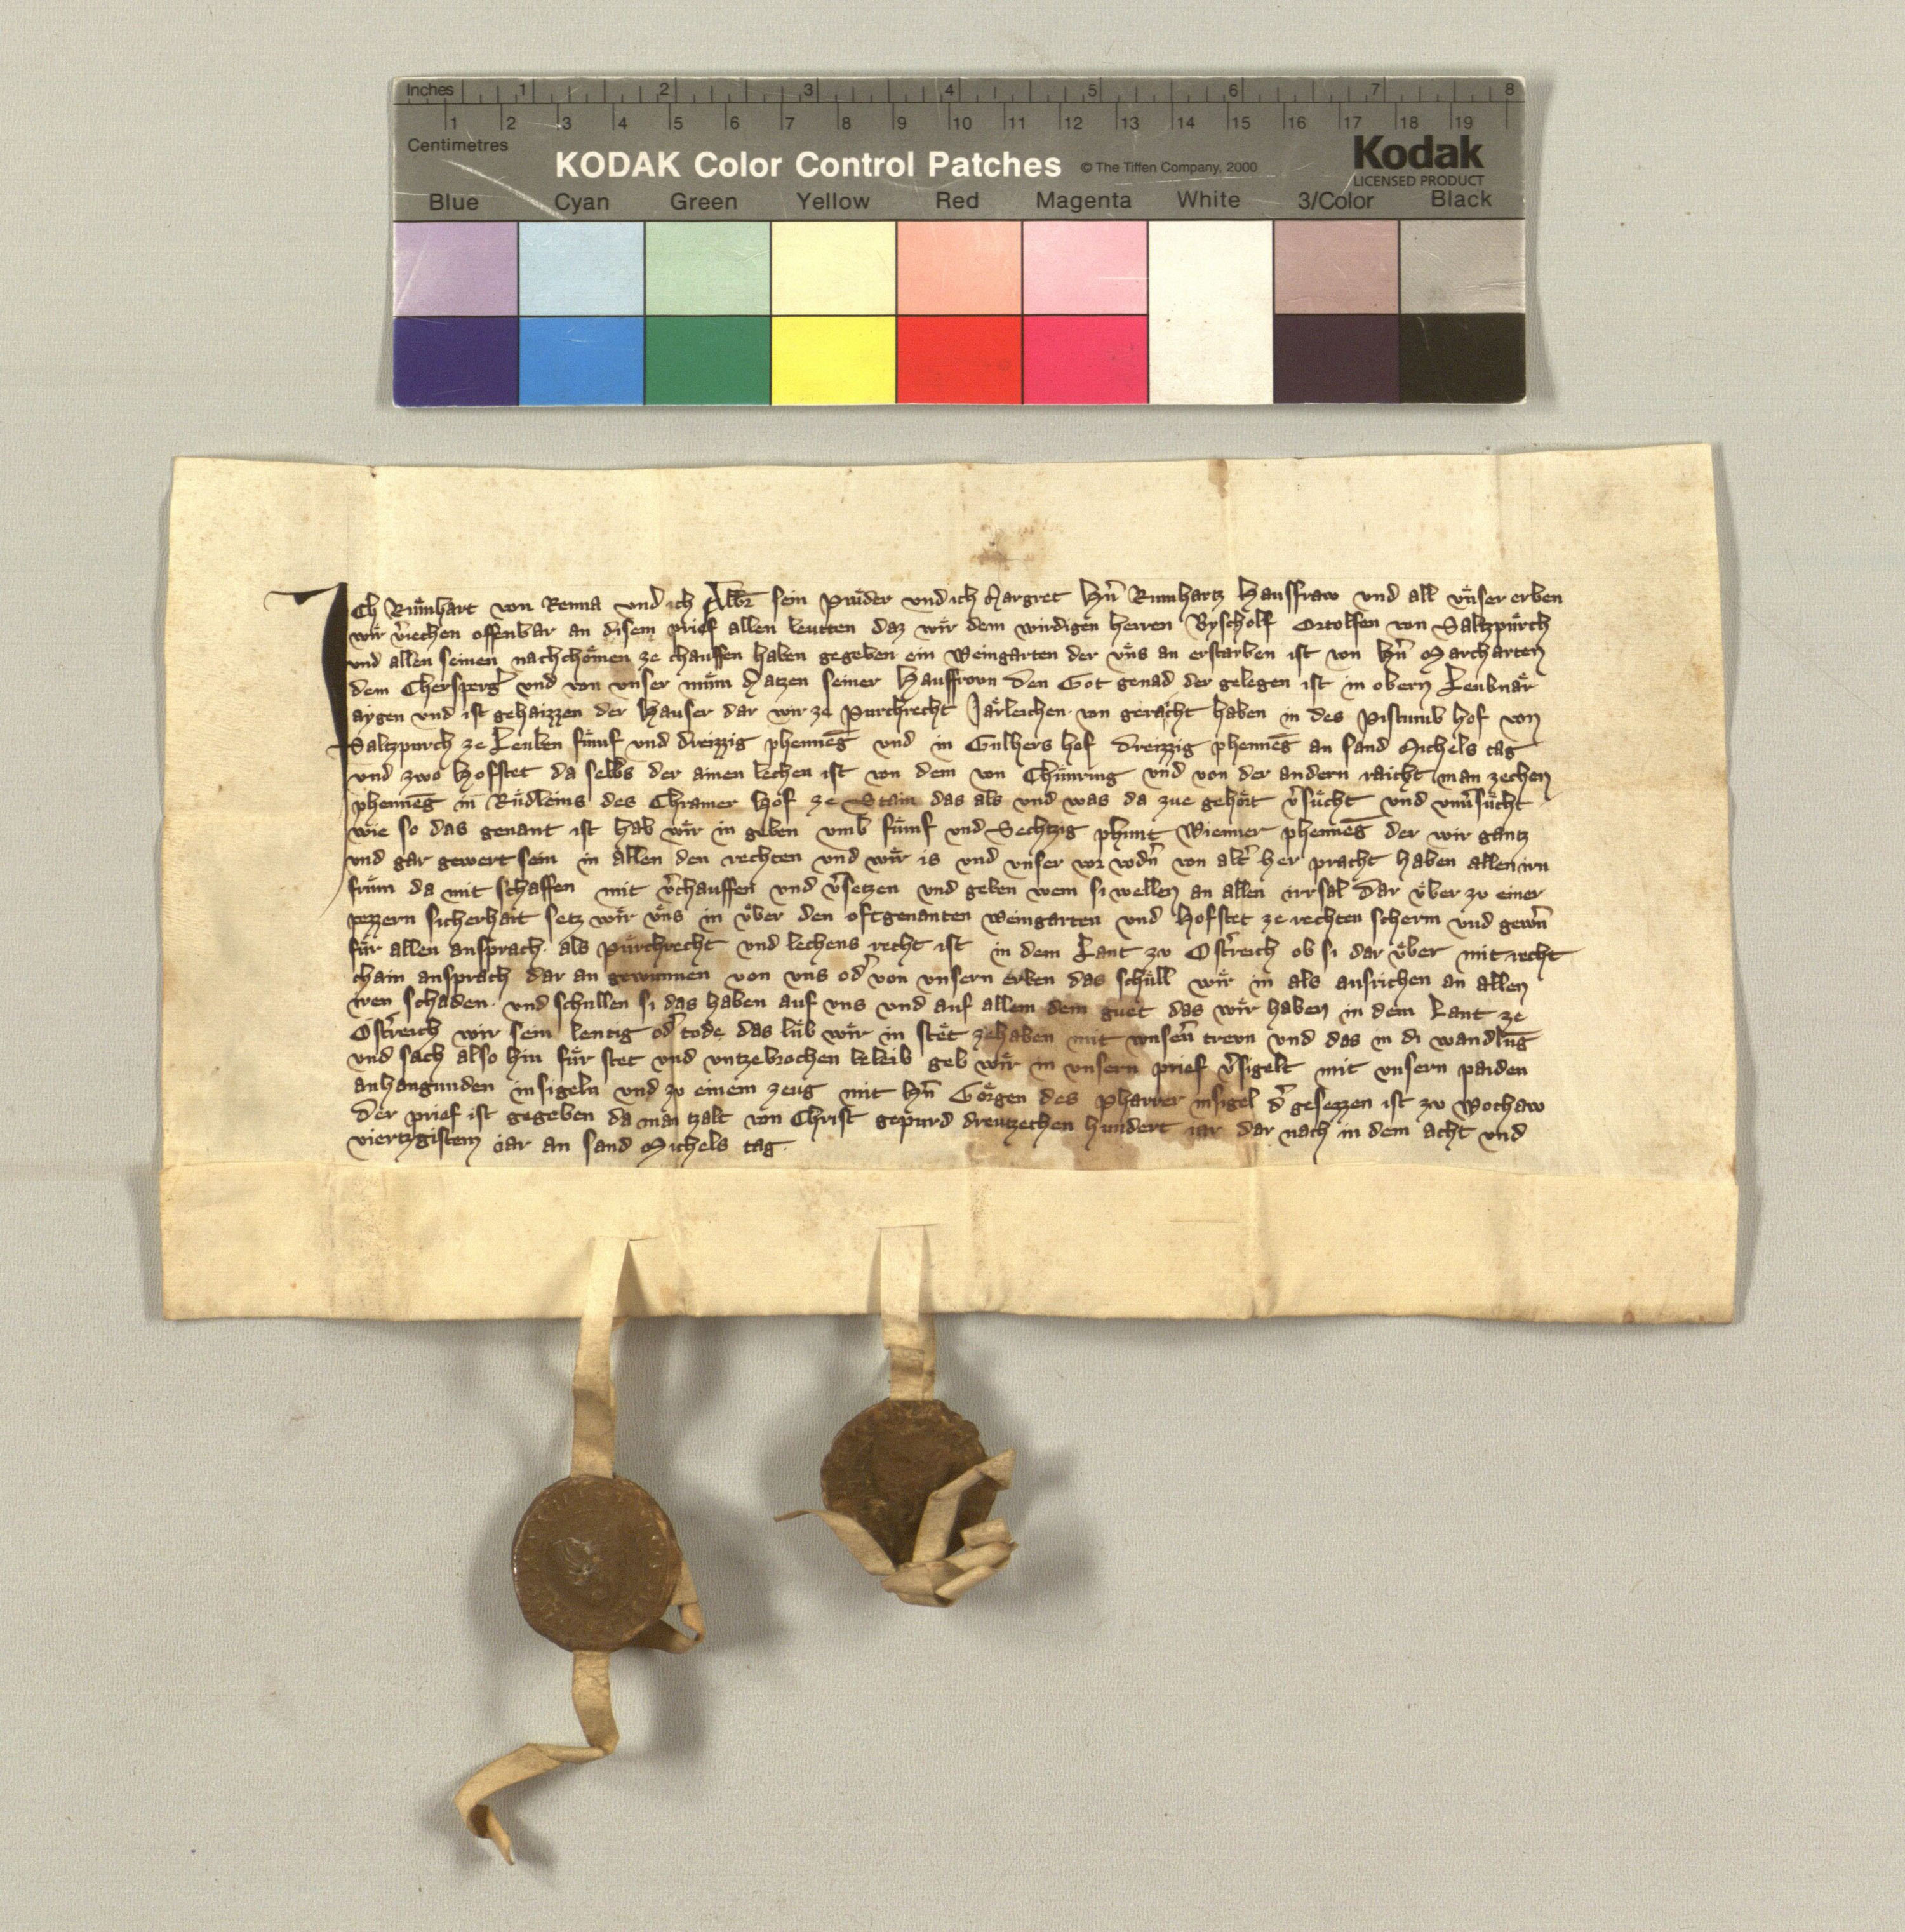 Inches 1 2 3 4 5 6 7 8
1 2 3 4 5 6 7 8 9 10 11 12 13 14 15 16 17 18 19
Centimetres
KODAK Color Control Patches © The Tiffen Company, 2000 Kodak
LICENSED PRODUCT
Blue Cyan Green Yellow Red Magenta White 3/Color Black
Ich Rumhart von Renna und ich Albr̄ sein Průder und ich Margret hern̄ Rumhartz Hausfraw und all vnser erben
wir v̄iechen offenbar an disem prief allen leutten daz wir dem wirdigen herren Byscholf Ortolfen von Saltzpürch
vnd allen seinen nachchömen ze chauffen haben gegeben ein Weingarten der vns an erstarben ist von hn̄ Marcharten
dem Chersperḡ vnd von vnser mům Matzen seiner Hauffrovn den Got genad der gelegen ist in obern Leubnär
aygen vnd ist gehaizzen der Hauser dar wir ze Purchrecht Järleichen von geracht haben in des Pistumb hof von
Saltzpurch ze Leuben fümf vnd dreizzig phenneḡ vnd in Gulhers hof dreizzig phenneḡ an sand Michels tag
vnd zwo Hofstet da selbs der ainen lechen ist von dem von Chünring vnd von der andern raicht man zechen
phenneḡ in Rüdleins des Chramer Hof ze Stain das als vnd was da zue gehört v̄sücht vnd vnuersücht
wie so das genant ist hab wir in geben vmb fümf vnd Sechtzig phunt Wienner phenneḡ der wir gantz
vnd gar gewert sein in allen den rechten vnd wir is vnd vnser vor vodn̄ von alt̄ her pracht haben allen irn
frum da mit schaffen mit v̄chauffen vnd v̄setzen vnd geben wem si wellen an allen irrsal dar über zv einer
pezzern sicherhait setz wir vns in über den oftgenanten weingarten vnd Hofstet ze rechten scherm vnd gewn̄
für allen ansprach als purchrecht vnd lechens recht ist in dem Lant zv Ost̄reich ob si dar über mit recht
chain ansprach dar an gewunnen von vns od̄ von vnsern erben das schüll wir in als ausrichen an allen
iren schaden vnd schullen si das haben auf vns vnd auf allem dem guet das wir haben in dem Lant ze
Ost̄reich wir sein lentig od̄ tode das lüb wir in stet ze haben mit vnsern̄ trevn vnd das in di wandlūg
vnd sach also hin für stet vnd vntzebrochen beleib geb wir in vnsern prief v̄sigelt mit vnsern paiden
anhangunden insigeln vnd zv einem zeug mit hn̄ Görgen des pharrer insigel d̄ gesezzen ist zv Wochaw
der prief ist gegeben da man tzalt von Christ gepurd dreutzechen hundert iar dar nach in dem acht vnd
viertzgistem iar an sand Michels tag